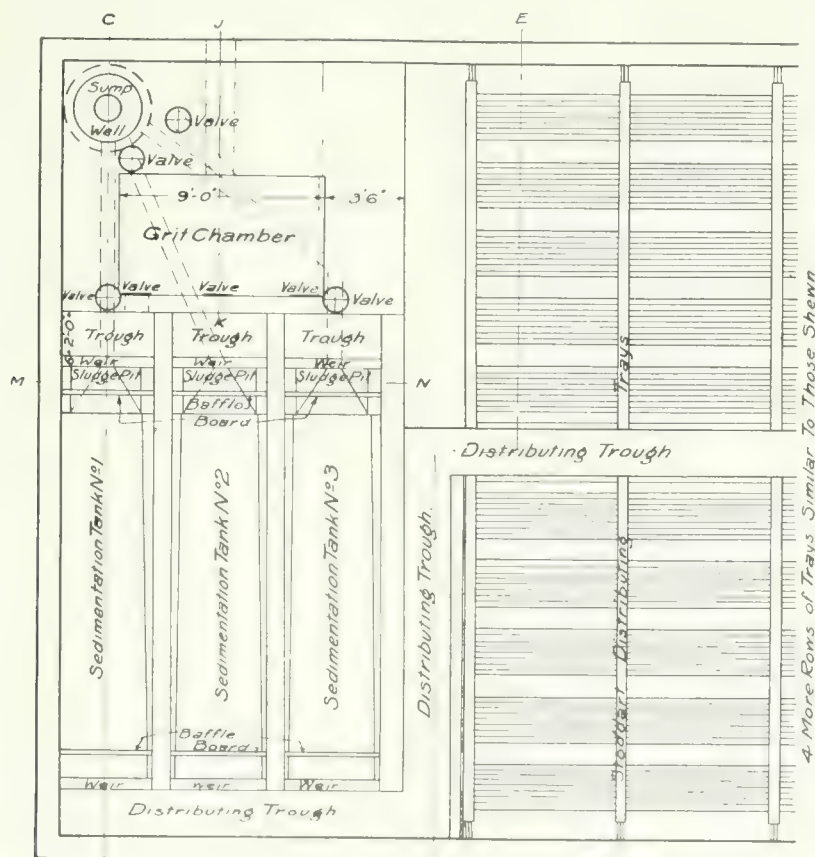 C
J
E
Sump
Well
Valve
Valve
9'-0"
3'6"
Grit Chamber
Valve
Valve
Valve
Valve
Valve
Trough
K
Trough
Trough
2'-0"
Weir
Weir
Weir
M
Sludge Pit
Sludge Pit
Sludge Pit
N
Baffle
Board
Sedimentation Tank No 1
Sedimentation Tank No 2
Sedimentation Tank No 3
Baffle
Boards
Weir
Weir
Weir
Distributing Trough
Distributing Trough.
Distributing Trough
Stoddart Distributing Trays
4 More Rows of Trays Similar To Those Shewn